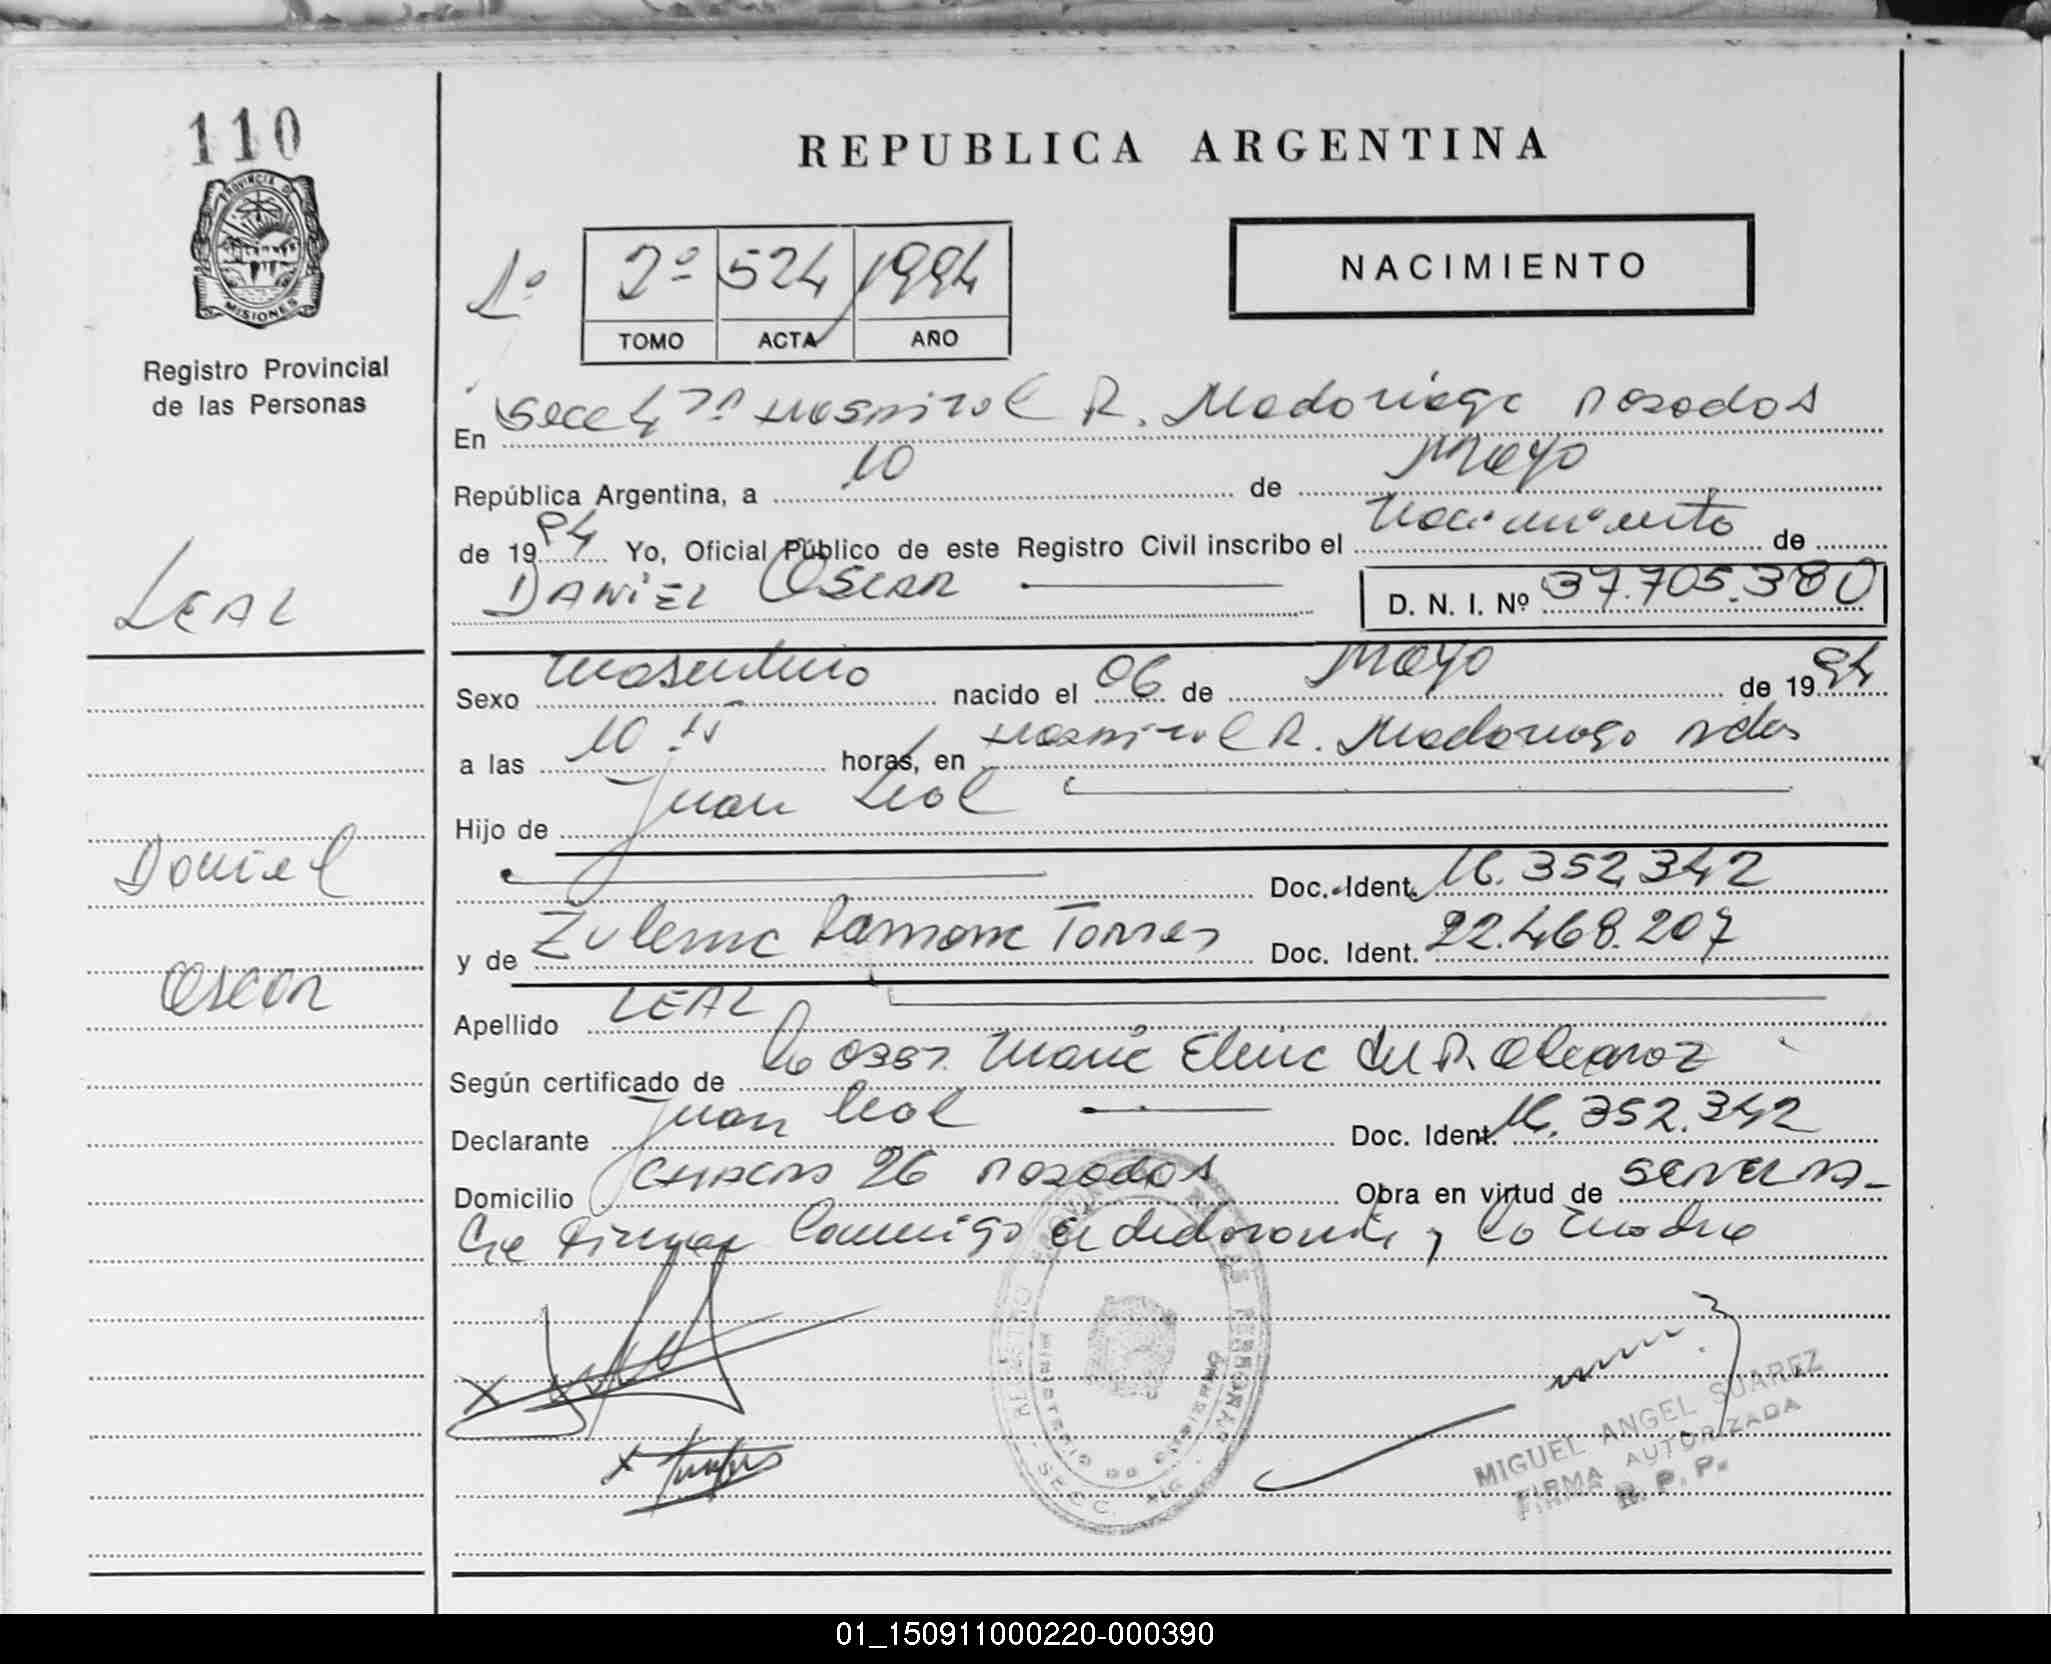 110
PROVINCIA DE
MISIONES
Registro Provincial
de las Personas
REPUBLICA ARGENTINA
1º
2º 524 1994
TOMO ACTA AÑO
NACIMIENTO
En Secc 4 Hospital R. Madariaga Posadas
República Argentina, a 10 de Mayo
de 1994 Yo, Oficial Público de este Registro Civil inscribo el Nacimiento de
DANIEL OSCAR D. N. I. Nº 37.705.380
LEAL
Sexo masculino nacido el 06 de Mayo de 1994
a las 10 horas, en Hospital R. Madariaga Pdas
Hijo de Juan Leal
Daniel
Doc. Ident. M. 352342
y de Zulema Ramona Torres Doc. Ident. 22.468.207
Oscar
Apellido LEAL
Según certificado de la Obst. María Elena del R. Alcaraz
Declarante Juan Leal Doc. Ident. M. 352.342
Domicilio CHACRA 26 Posadas Obra en virtud de
firman conmigo el declarante y la madre
REGISTRO PROVINCIAL DE LAS PERSONAS
MINISTERIO DE GOBIERNO
SECC.
MIGUEL ANGEL SUAREZ
FIRMA AUTORIZADA
R. P. P.
01_150911000220-000390